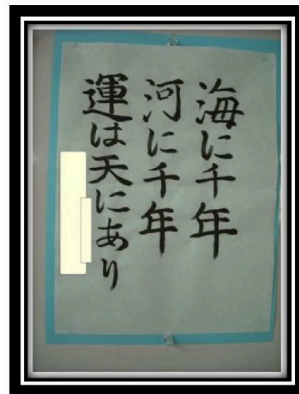 海に千年
河に千年
運は天にあり